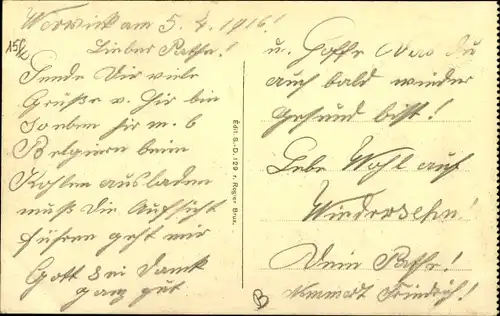 Werwick am 5.4.1916!
15/2
Lieber Pathe!
Sende Dir viele
Grüße v. hir bin
soeben hir m. 6
Belgiern beim
Kohlen ausladen
muß die Aufsicht
führen geht mir
Gott sei Dank
ganz gut
Édit S.-D. 129 r. Rogier Brux.
u. hoffe das du
auch bald wieder
gesund bist!
Lebe Wohl auf
Wiedersehn!
Dein Pathe!
Friedrich!
B